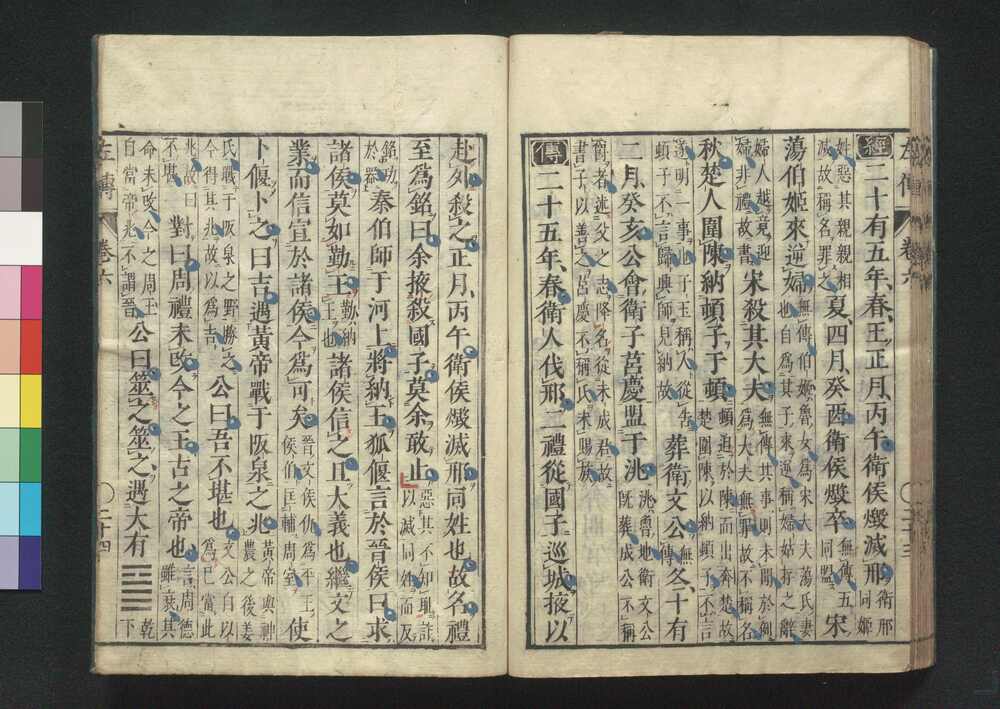 左傳 卷六 二十三
經 二十有五年、春、王正月、丙午、衛侯燬滅邢 衛邢同姬
姓惡其親親相滅故稱名罪之 夏、四月、癸酉、衛侯燬卒 無傳五同盟 宋
蕩伯姬來逆婦 無傳伯姬魯女為宋大夫蕩氏妻也自為其子來逆稱婦姑存之辭
婦人越竟迎婦非禮故書 宋殺其大夫 無傳其事則未聞於例為大夫無罪故不稱名
秋、楚人圍陳納頓子于頓 頓迫於陳而出奔楚故楚圍陳以納頓子不言
遂明一事也子玉稱人從告頓子不言歸興師見納故 葬衛文公 無傳 冬、十有
二月、癸亥、公會衛子莒慶盟于洮 洮魯地衛文公既葬成公不稱
爵者述父之志降名從未成君故書子以善之莒慶不稱氏未賜族
傳 二十五年、春、衛人伐邢、二禮從國子巡城、掖以
赴外殺之、正月、丙午、衛侯燬滅邢、同姓也、故名、禮
至爲銘曰、余掖殺國子、莫余敢止 惡其不知恥詐以滅同姓而反
銘功於器 秦伯師于河上、將納王、狐偃言於晉侯曰、求
諸侯莫如勤王 勤納王也 諸侯信之、且大義也、繼文之
業、而信宣於諸侯、今爲可矣 晉文侯仇為平王侯伯匡輔周室 使
卜偃卜之、曰、吉、遇黃帝戰于阪泉之兆 黃帝與神農之後姜
氏戰于阪泉之野勝之今得其兆故以為吉 公曰、吾不堪也 文公自以為已當此
兆故曰不堪 對曰、周禮未改、今之王、古之帝也 言周德雖衰其
命未改今之周王自當帝兆不謂晉 公曰、筮之、筮之、遇大有 ䷍ 乾下
左傳 卷六 二十四